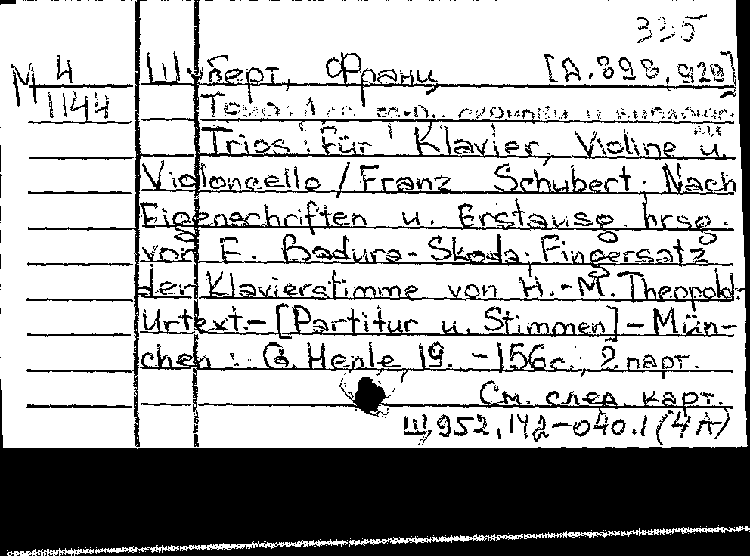 335
М 4 Шуберт, Франц [Д. 898, 929]
1144 скрипки и
Trios: für Klavier, Violine u.
Violoncello / Franz Schubert; Nach
Eigenschriften u. Erstausg. hrsg.
von E. Badura-Skoda; Fingersatz
der Klavierstimme von H.-M. Theopold.-
Urtext.-[Partitur u. Stimmen]-Mün-
chen: G. Henle, 19. -156с., 2 парт.
См. след. карт.
Ш 952.142-040.1 (4А)